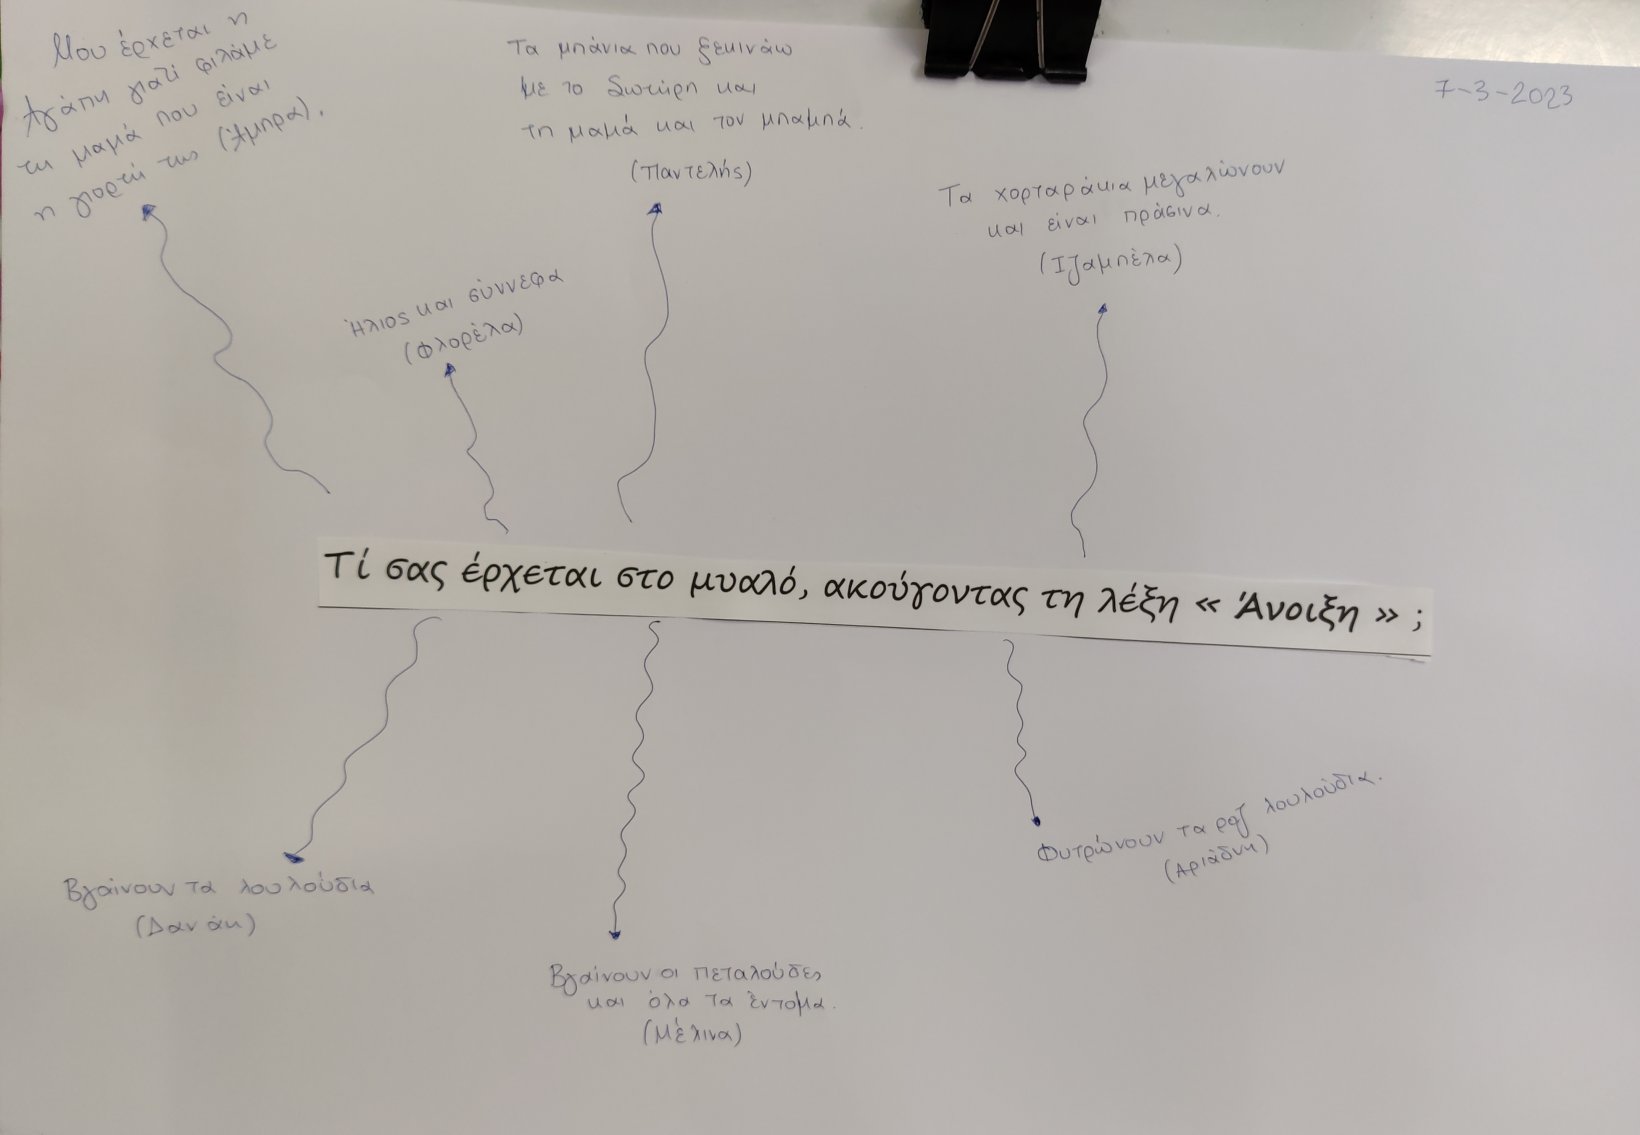 Μου έρχεται η
Αγάπη γιατί φιλάμε
τη μαμά που είναι
η γιορτή της (Άμπρα).
Τα μπάνια που ξεκινάω
με το Σωτήρη και
τη μαμά και τον μπαμπά.
(Παντελής)
7-3-2023
Τα χορταράκια μεγαλώνουν
και είναι πράσινα.
(Ιζαμπέλα)
Ήλιος και σύννεφα
(Φλορέλα)
Τί σας έρχεται στο μυαλό, ακούγοντας τη λέξη « Άνοιξη » ;
Φυτρώνουν τα ροζ λουλούδια.
(Αριάδνη)
Βγαίνουν τα λουλούδια
(Δανάη)
Βγαίνουν οι πεταλούδες
και όλα τα έντομα.
(Μέλινα)